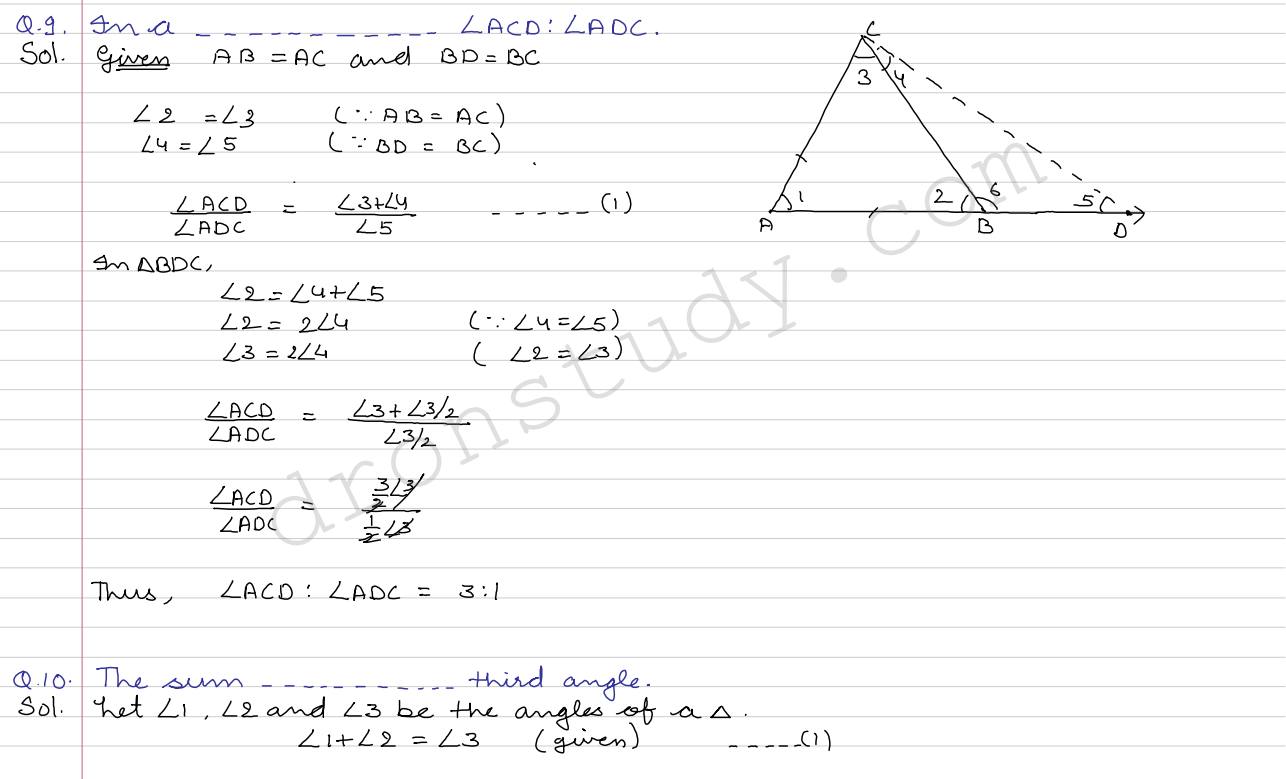 Q.9. In a ------------ ∠ACD : ∠ADC.
Sol. Given AB = AC and BD = BC
∠2 = ∠3 (∵ AB = AC)
∠4 = ∠5 (∵ BD = BC)
∠ACD/∠ADC = (∠3+∠4)/∠5 ----- (1)
In ΔBDC,
∠2 = ∠4+∠5
∠2 = 2∠4 (∵ ∠4 = ∠5)
∠3 = 2∠4 ( ∠2 = ∠3)
∠ACD/∠ADC = (∠3 + ∠3/2)/(∠3/2)
∠ACD/∠ADC = (3/2 ∠3)/(1/2 ∠3)
Thus, ∠ACD : ∠ADC = 3:1
C
3 4
1 2 6 5
A B D
dronstudy.com
Q.10. The sum ------------ third angle.
Sol. Let ∠1, ∠2 and ∠3 be the angles of a Δ.
∠1+∠2 = ∠3 (given) -----(1)